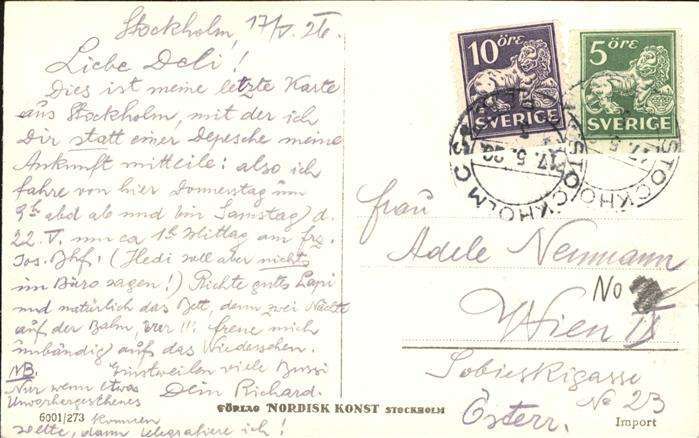 Stockholm, 17/V. 26.
Liebe Deli!
Dies ist meine letzte Karte
aus Stockholm, mit der ich
Dir statt einer Depesche meine
Ankunft mitteile: also ich
fahre von hier Donnerstag um
9h abd ab und bin Samstag d.
22.V. um ca 1h Mittag am frz.
Jos. Bhf. (Hedi soll aber nichts
im Büro sagen!) Richte guts Papi
und natürlich das Bett, denn zwei Nächte
auf der Bahn, brr!!! freue mich
unbändig auf das Wiedersehen.
Einstweilen viele Bussi
Dein Richard.
NB.
Nur wenn etwas
Unvorhergesehenes
kommen
sollte, dann telegrafiere ich!
6001/273
FÖRLAG NORDISK KONST STOCKHOLM
10 ÖRE
SVERIGE
5 ÖRE
SVERIGE
STOCKHOLM
17.5.26
STOCKHOLM
17.5
Frau
Adele Neumann
No
Wien
Sobieskigasse
No 23
Österr.
Import